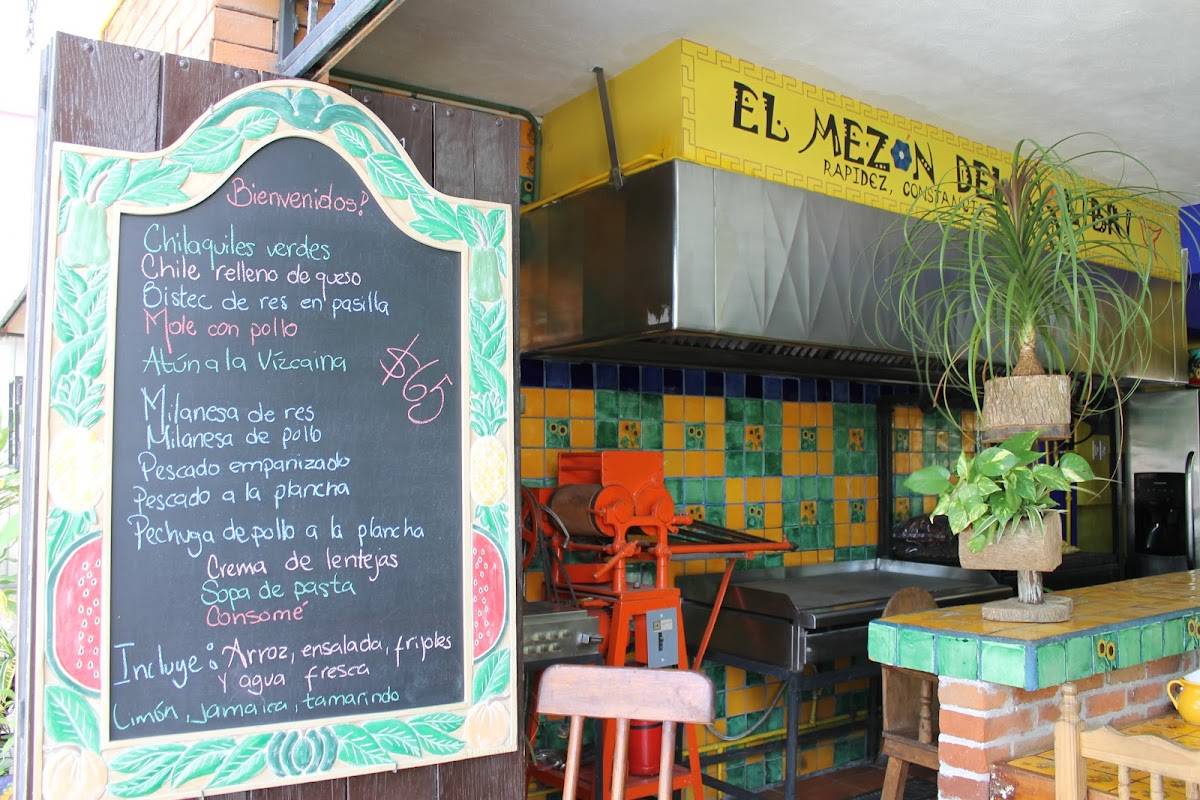 Bienvenidos!
Chilaquiles verdes
Chile relleno de queso
Bistec de res en pasilla
Mole con pollo
Atún a la Vízcaina
$65
Milanesa de res
Milanesa de pollo
Pescado empanizado
Pescado a la plancha
Pechuga de pollo a la plancha
Crema de lentejas
Sopa de pasta
Consomé
Incluye: Arroz, ensalada, frijoles
y agua fresca
Limón, jamaica, tamarindo
EL MEZÓN DEL
RAPIDEZ,